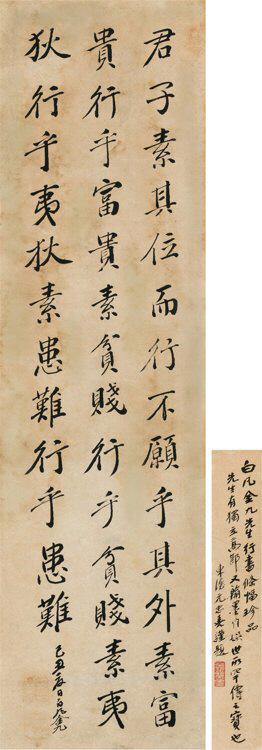 君子素其位而行不願乎其外素富
貴行乎富貴素貧賤行乎貧賤素夷
狄行乎夷狄素患難行乎患難
己丑春日白凡
白凡金九先生行書條幅珍品
先生有獨立又翰墨世所罕傳之寶也
謹題